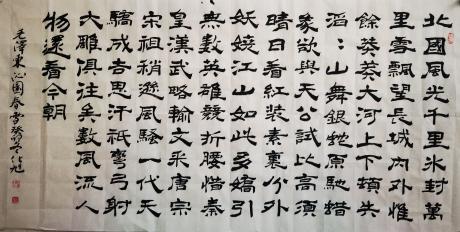 北國風光千里冰封萬
里雪飄望長城內外惟
餘莽莽大河上下頓失
滔:山舞銀蛇原馳蜡
象欲與天公試比高須
晴日看紅裝素裹分外
妖嬈江山如此多嬌引
無數英雄競折腰惜秦
皇漢武略輸文采唐宗
宋祖稍遜風騷一代天
驕成吉思汗祇彎弓射
大雕俱往矣數風流人
物還看今朝
毛澤東沁園春雪